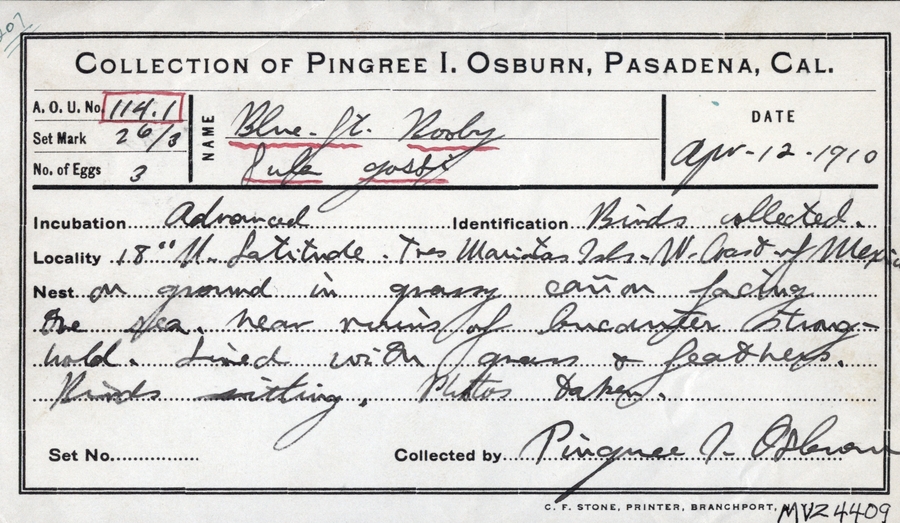 207
COLLECTION OF PINGREE I. OSBURN, PASADENA, CAL.
A. O. U. No. 114.1
Set Mark 26/3
No. of Eggs 3
NAME
Blue-ft. Booby
Sula gossi
DATE
Apr-12-1910
Incubation Advanced Identification Birds collected.
Locality 18°" N. Latitude. Tres Marietas Isls. W. Coast of Mexico
Nest on ground in grassy cañon facing
the sea. near ruins of buccaneer strong-
hold. Lined with grass & feathers.
Birds sitting. Photos taken.
Set No. Collected by Pingree I. Osburn
C. F. STONE, PRINTER, BRANCHPORT,
MVZ 4409